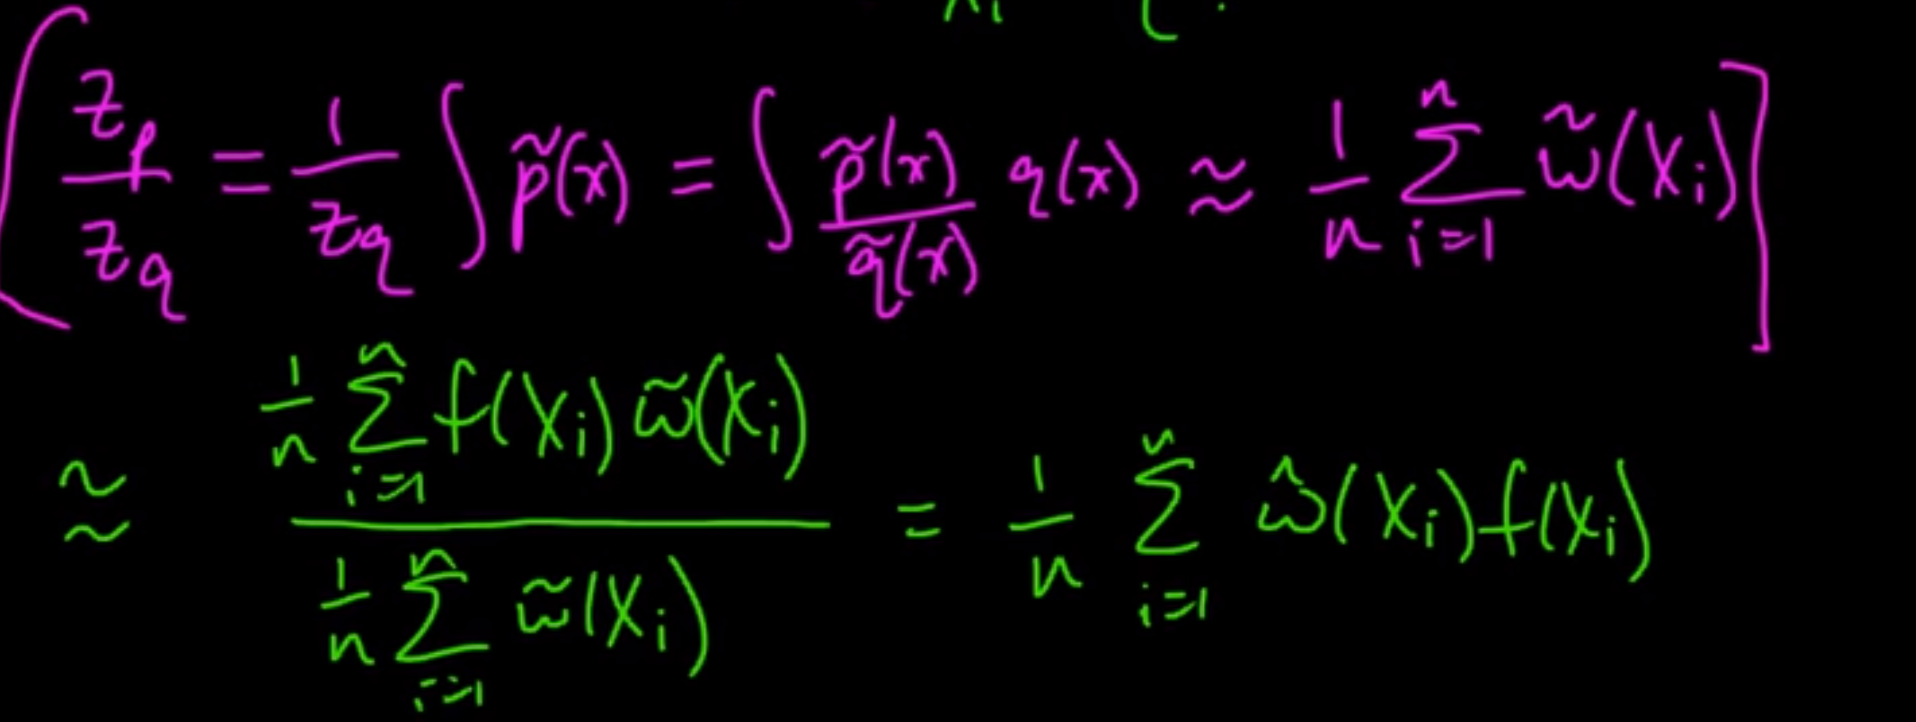 [z_p/z_q = 1/z_q ∫ p̃(x) = ∫ p̃(x)/q̃(x) q(x) ≈ 1/n Σ_{i=1}^{n} w̃(X_i)]
≈ (1/n Σ_{i=1}^{n} f(X_i) w̃(X_i)) / (1/n Σ_{i=1}^{n} w̃(X_i)) = 1/n Σ_{i=1}^{n} ŵ(X_i) f(X_i)